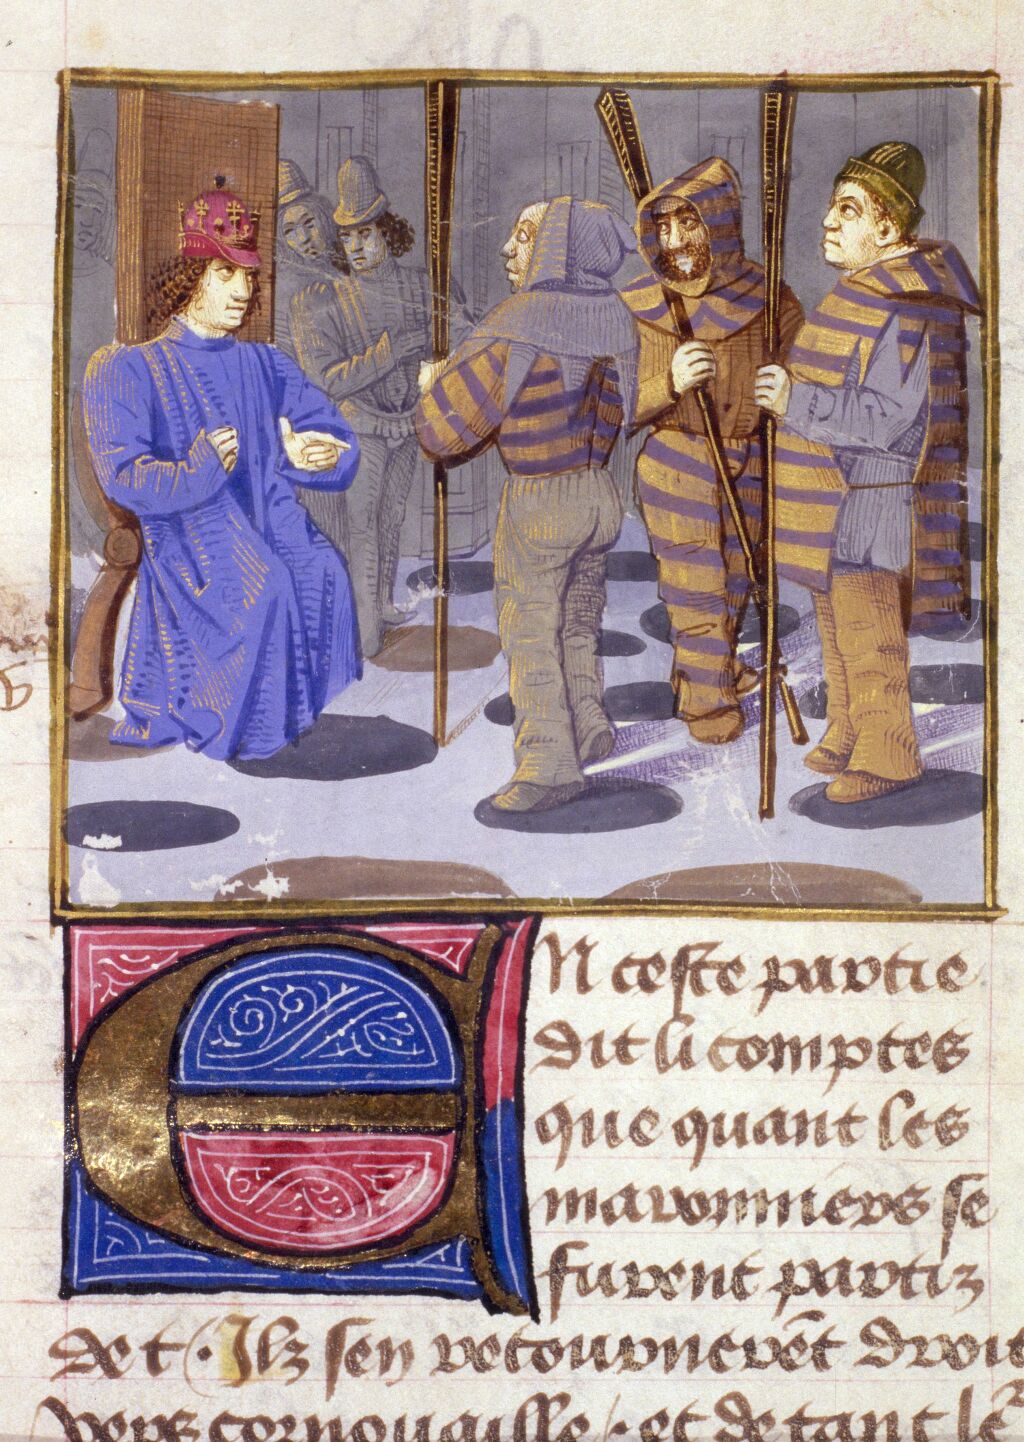 En ceste partie
dit li comptes
que quant les
maronniers se
furent partiz
de t(. Ilz sen retournerēt droit
vers cornouaille /. et de tant le